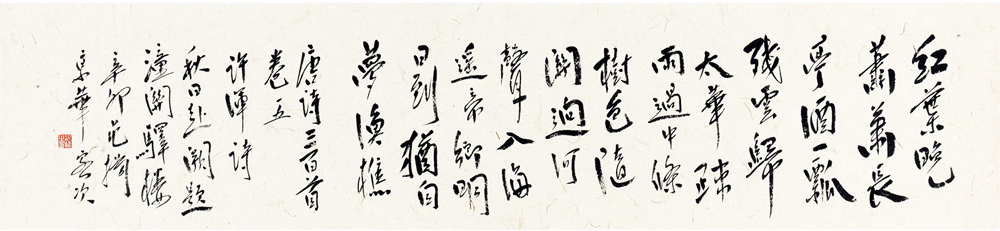 紅葉晚
蕭蕭長
亭酒一瓢
殘雲歸
太華疎
雨過中條
樹色隨
關迥河
聲入海
遙帝鄉明
日到猶自
夢漁樵
唐詩三百首
卷五
許渾詩
秋日赴闕題
潼關驛樓
辛卯范揚
京華客次